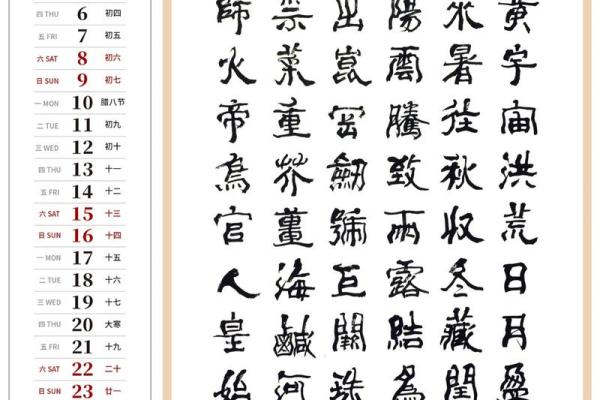 四 THU 6 初四
五 FRI 7 初五
六 SAT 8 初六
日 SUN 9 初七
一 MON 10 腊八节
二 TUE 11 初九
三 WED 12 初十
四 THU 13 十一
五 FRI 14 十二
六 SAT 15 十三
日 SUN 16 十四
一 MON 17 十五
二 TUE 18 十六
三 WED 19 十七
四 THU 20 大寒
五 FRI 21 十九
六 SAT 22 二十
日 SUN 23 廿一
黄宇宙洪荒日月盈
來暑往秋收冬藏閏
陽雲騰致雨露結為
出崑岡劍號巨闕珠
柰菜重芥薑海鹹河
師火帝鳥官人皇始